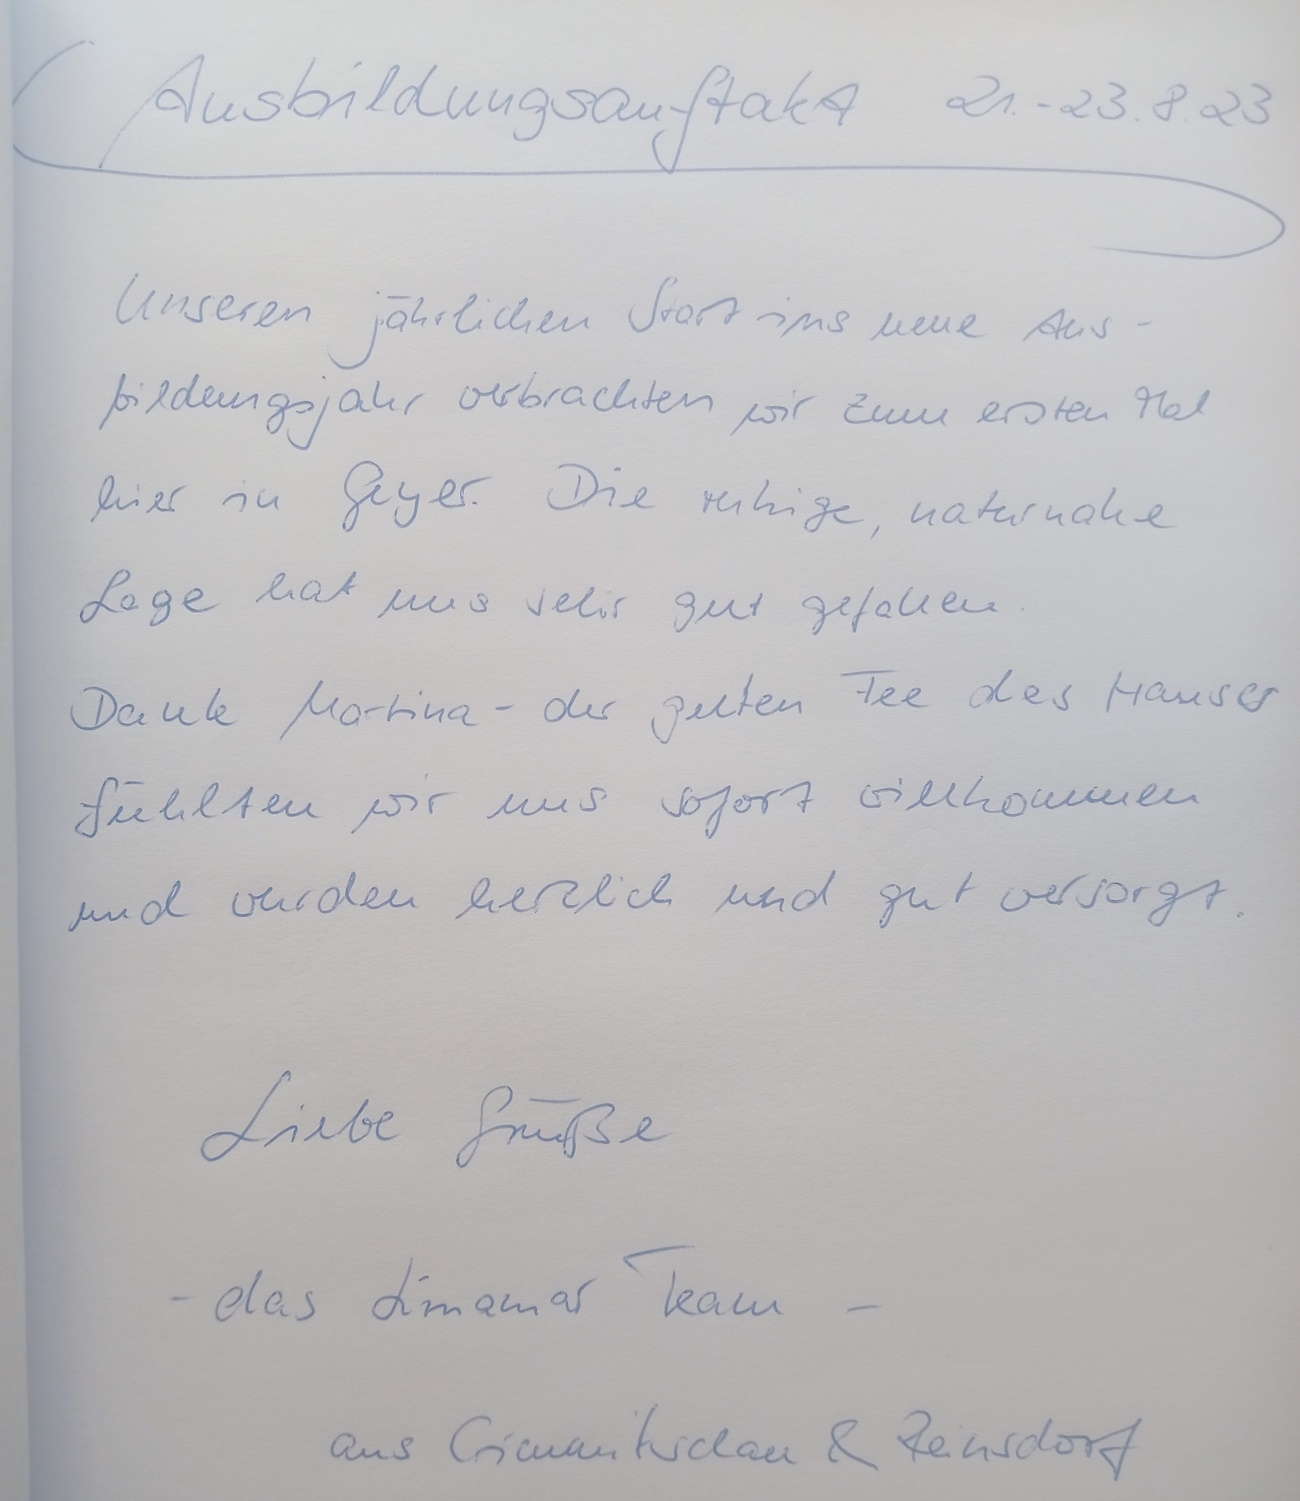 Ausbildungsauftakt 21.-23.8.23
Unseren jährlichen Start ins neue Aus-
bildungsjahr verbrachten wir zum ersten Mal
hier in Geyer. Die ruhige, naturnahe
Lage hat uns sehr gut gefallen.
Dank Martina - der guten Fee des Hauses
fühlten wir uns sofort willkommen
und wurden herzlich und gut versorgt.
Liebe Grüße
- das Linamar Team -
aus Crimmitschau & Reinsdorf